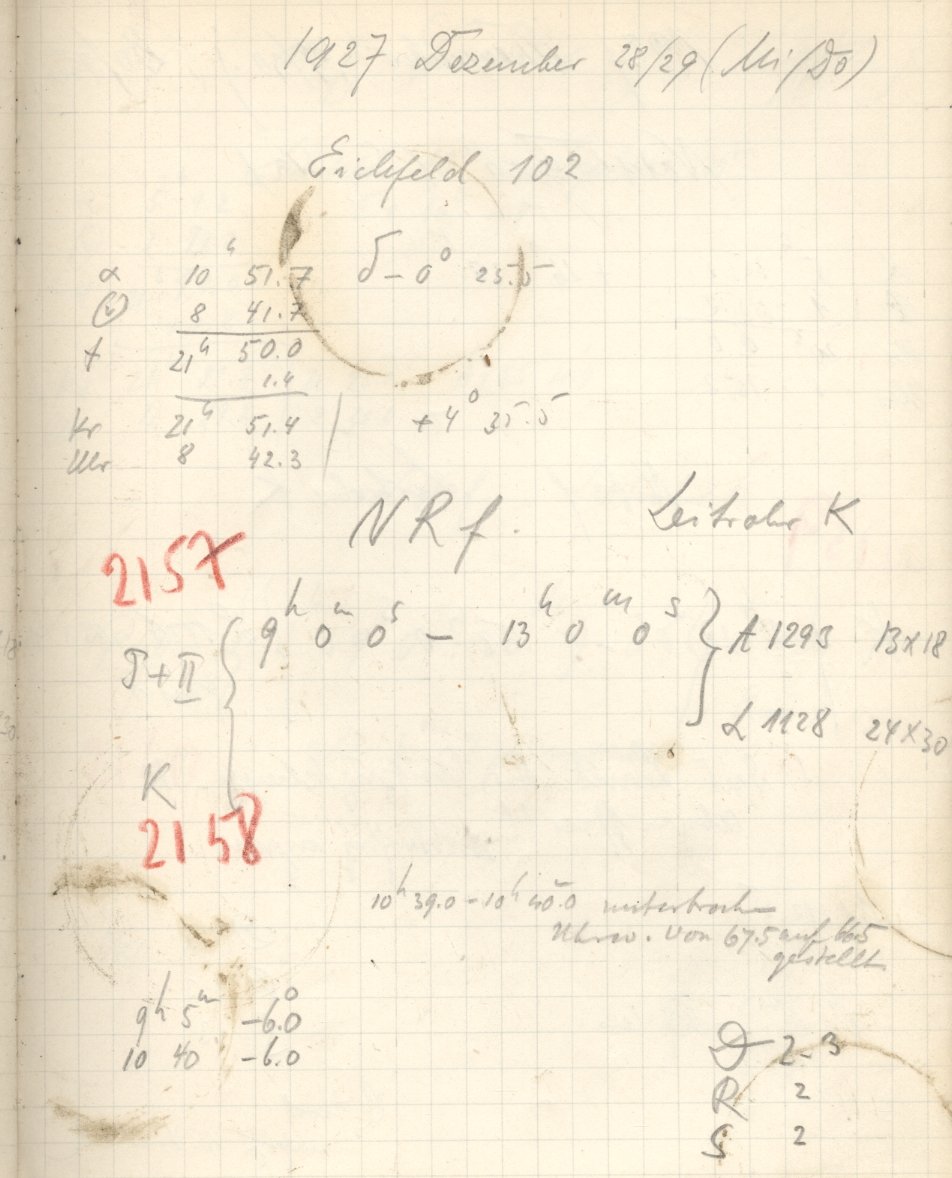 1927 Dezember 28/29 (Mi/Do)
Eichfeld 102
α 10ʰ 51.7 δ - 0° 25.5
8 41.7
t 21ʰ 50.0
1.4
Kr 21ʰ 51.4 + 4° 35.5
Uhr 8 42.3
NRf. Leitrohr K
2157
I+II 9ʰ 0ᵐ 0ˢ - 13ʰ 0ᵐ 0ˢ A 1293 13x18
L 1128 24x30
K
2158
10ʰ 39.0 - 10ʰ 40.0 unterbrochen
Uhrw. von 67.5 auf 66.5
gestellt
9ʰ 5ᵐ -6.0°
10 40 -6.0
D 2-3
R 2
S 2